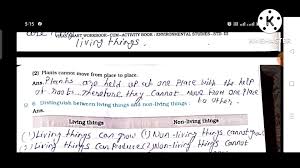 5:15
are
living things.
SMART WORKBOOK-CUM-ACTIVITY BOOK : ENVIRONMENTAL STUDIES-STD. III
KINEMASTER
(2) Plants cannot move from place to place.
Ans. Plants are held up at one place with the help
of roots. Therefore they cannot move from one place
to other.
6. Distinguish between living things and non-living things :
Ans.
Living things Non-living things
(1) Living things can grow (1) Non-living things cannot grow
(2) Living things can produce (2) Non-living things cannot